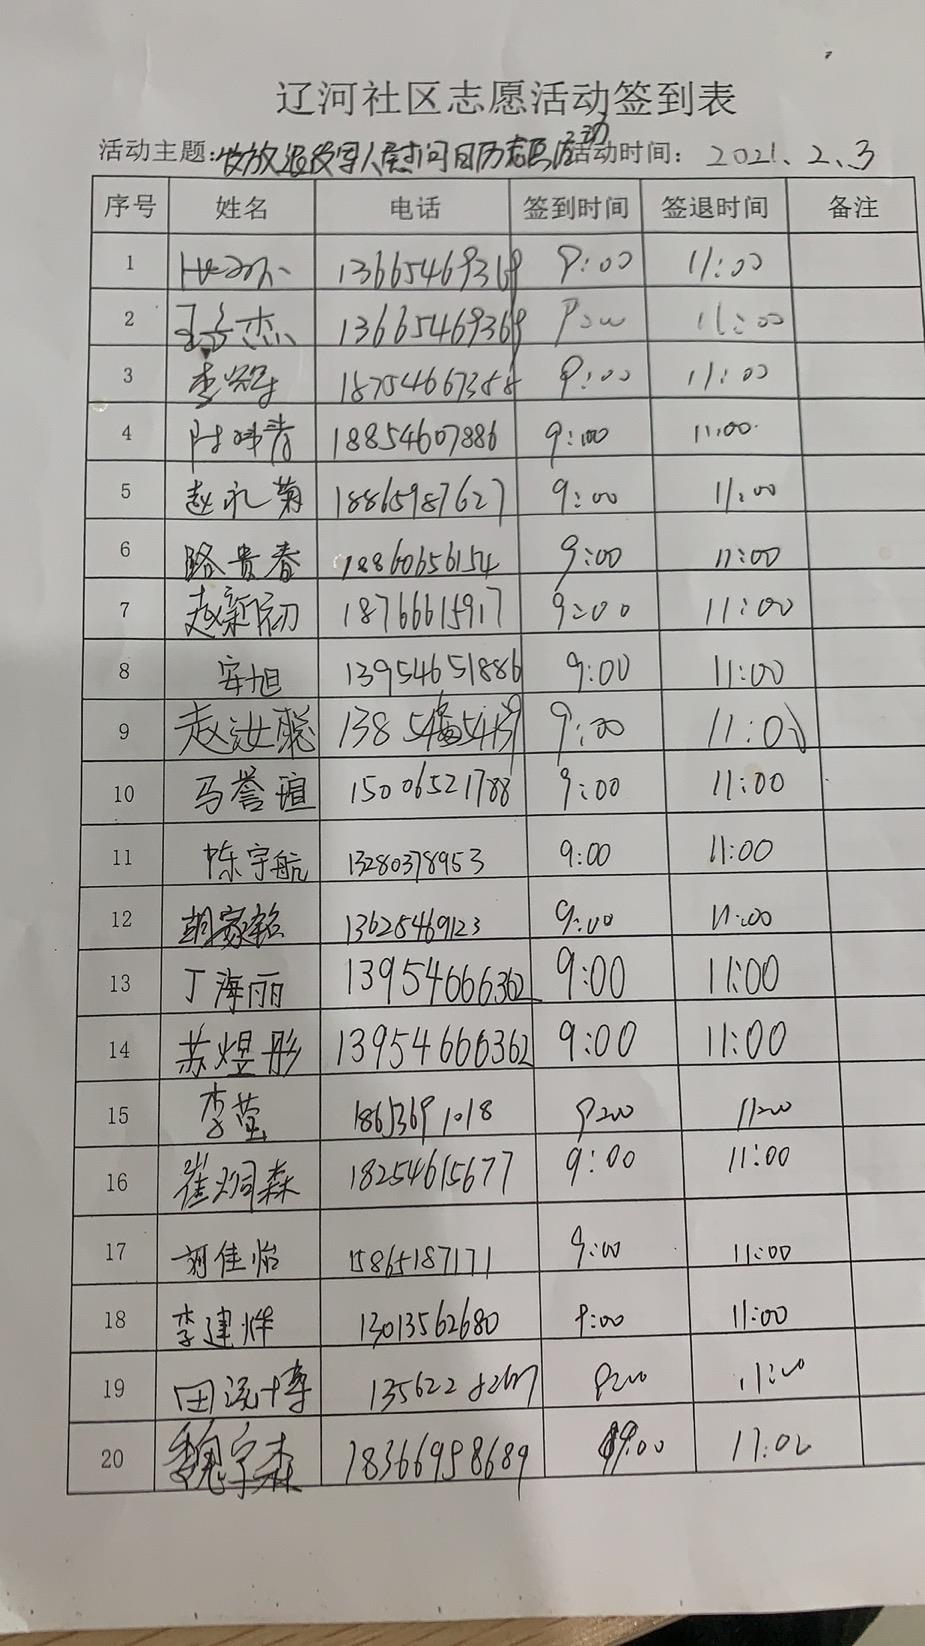 辽河社区志愿活动签到表
活动主题：发放退役军人慰问日历志愿活动 活动时间：2021.2.3
序号 姓名 电话 签到时间 签退时间 备注
1 13665469369 9:00 11:00
2 杰 13665469369 9:00 11:00
3 李 18754667358 9:00 11:00
4 陈 青 18854607886 9:00 11:00
5 赵永菊 18865987627 9:00 11:00
6 路贵春 18860656154 9:00 11:00
7 赵新初 18766615917 9:00 11:00
8 安旭 13954651886 9:00 11:00
9 赵汝聪 9:00 11:00
10 马誉瑄 15006521788 9:00 11:00
11 陈宇航 13280378953 9:00 11:00
12 胡家铭 13625469123 9:00 11:00
13 丁海丽 13954666362 9:00 11:00
14 苏煜彤 13954666362 9:00 11:00
15 李莹 18653691018 9:00 11:00
16 崔炯森 18254615677 9:00 11:00
17 佳怡 15865187171 9:00 11:00
18 李建烨 13013562680 9:00 11:00
19 田 博 9:00 11:00
20 魏宇森 18366958689 9:00 11:00